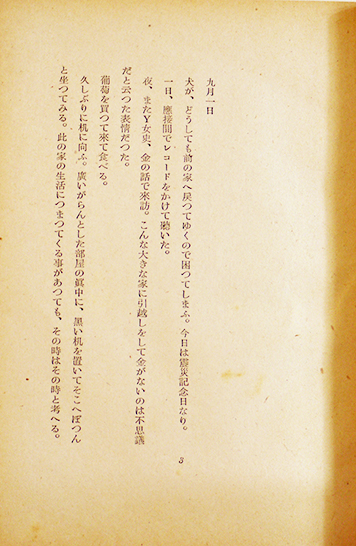 九月一日
犬が、どうしても前の家へ戻つてゆくので困つてしまふ。今日は震災記念日なり。
一日、應接間でレコードをかけて聽いた。
夜、またY女史、金の話で來訪。こんな大きな家に引越しをして金がないのは不思議
だと云つた表情だつた。
葡萄を買つて來て食べる。
久しぶりに机に向ふ。廣いがらんとした部屋の眞中に、黑い机を置いてそこへぽつん
と坐つてみる。此の家の生活につまつてくる事があつても、その時はその時と考へる。
3